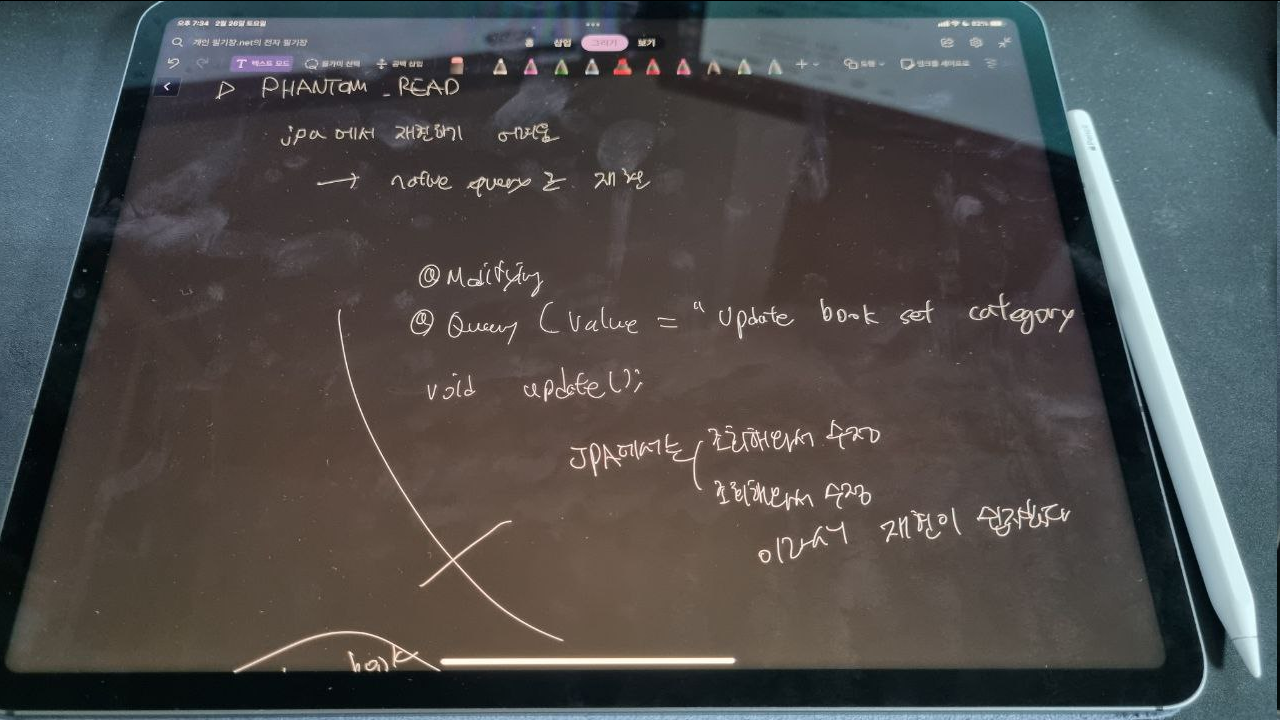 오후 7:34 2월 26일 토요일
82%
개인 필기장.net의 전자 필기장
홈 삽입 그리기 보기
텍스트 모드 올가미 선택 공백 삽입 도형 잉크를 셰이프로
▷ PHANTOM _ READ
jpa 에서 재현하기 어려움
→ native query로 재현
@ Modifying
@ Query (value = "update book set category
void update();
JPA에서는 조회해와서 수정
조회해와서 수정
이라서 재현이 쉽지않다